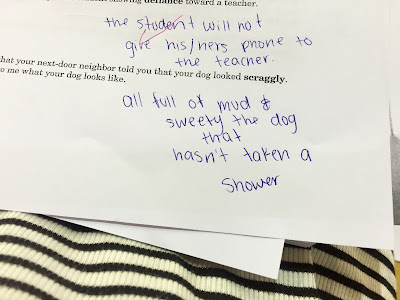 showing defiance toward a teacher.
the student will not
give his/hers phone to
the teacher.
hat your next-door neighbor told you that your dog looked scraggly.
o me what your dog looks like.
all full of mud &
sweety the dog
that
hasn't taken a
shower